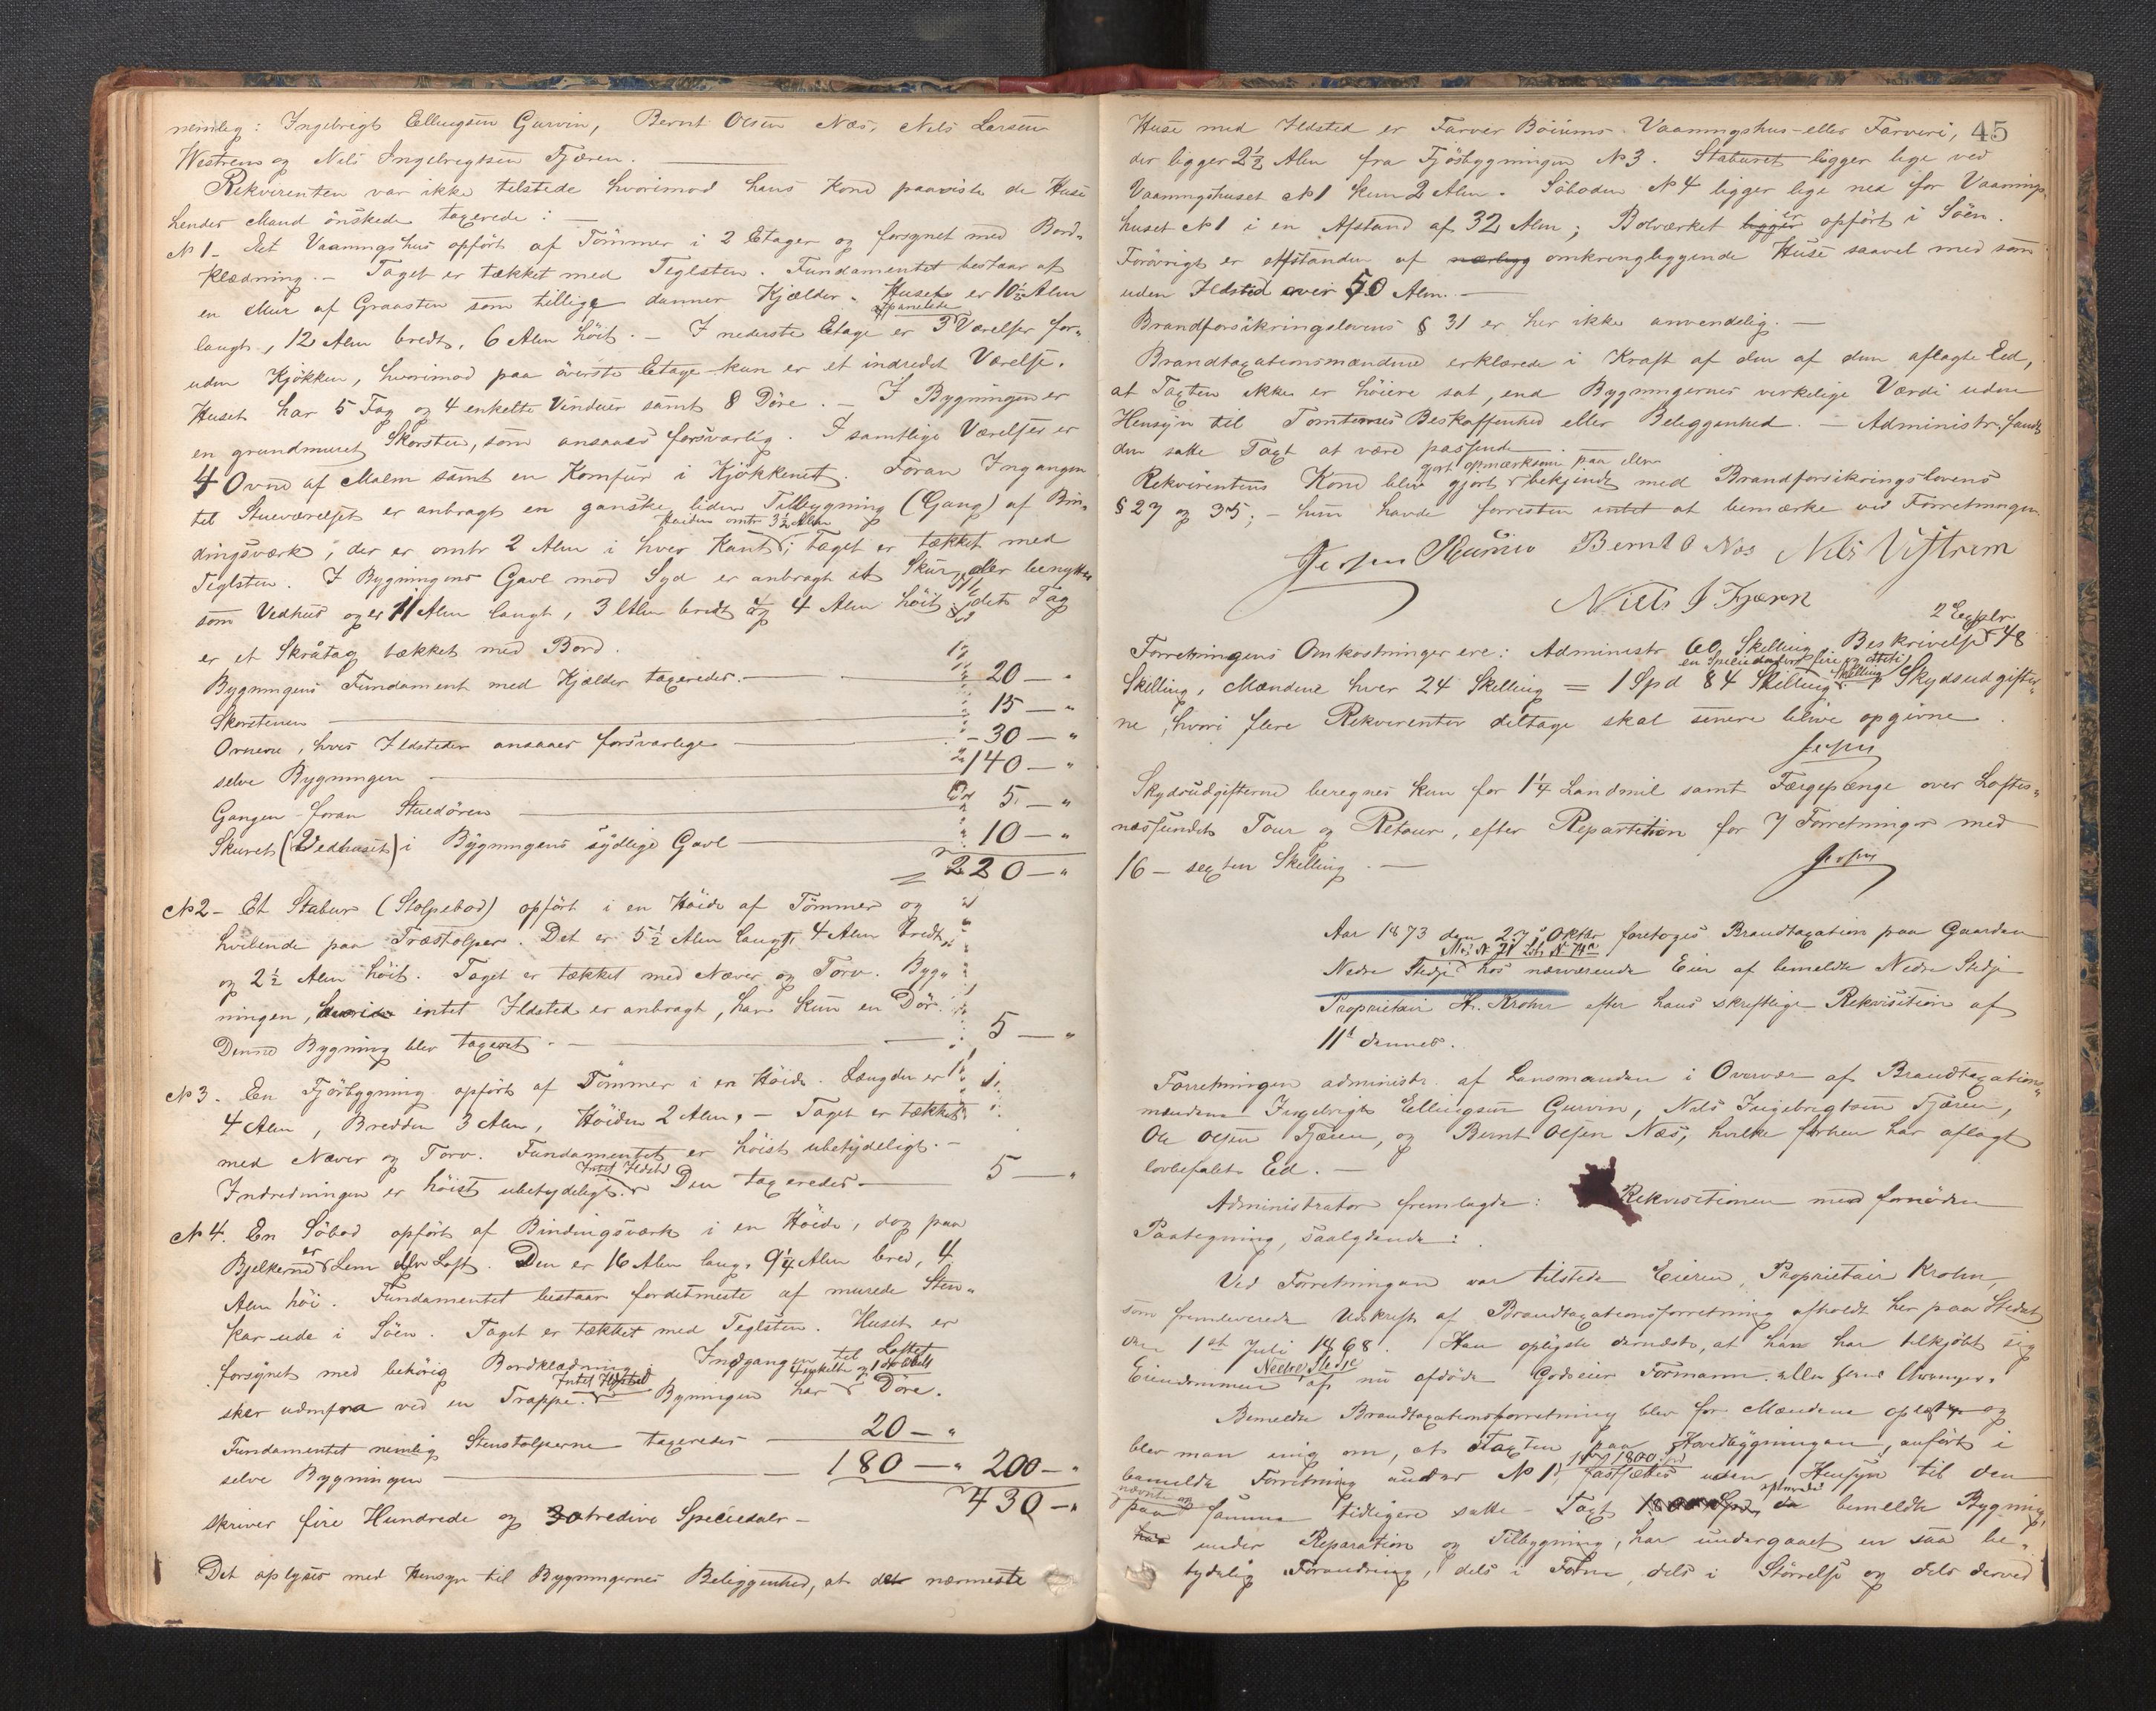 nemlig: Ingebregt Ellingsen Gurvin, Bernt Olsen Næs, Nels Larsen
Westrem og Nils Ingebregtsen Fjæren.
Rekvirenten var ikke tilstede hvorimod hans Kone paaviste de Huse
hendes Mand önskede taxerede:
No 1- Et Vaaningshus opfört af Tömmer i 2 Etager og forsynet med Bord-
klædning. - Taget er tækket med Teglsten. Fundamentet bestaar af
en Mur af Graasten som tillige danner Kjælder. Huset er 10½ Alen
langt, 12 Alen bredt, 6 Alen höit. - I nederste Etage er 3 panelede Værelser for-
uden Kjökken, hvorimod paa överste Etage kun er et indredet Værelse.
Huset har 5 Fag og 4 enkelte Vinduer samt 8 Döre. - I Bygningen er
en grundmuret Skorsten, som ansaaes forsvarlig. I samtlige Værelser er
4 Ovne af Malm samt en Komfur i Kjökkenet. Foran Ingangen
til Stueværelset er anbragt en ganske liden Tilbygning (Gang) af Bin-
dingsværk, der er omtr 2 Alen i hver Kant, Höiden omtr 3½ Alen; Taget er tækket med
Teglsten. I Bygningens Gavl mod Syd er anbragt et Skur, der benyttes
som Vedhus og er 11 Alen langt, 3 Alen bredt og 4 Alen höit, dets Tag
er et Skråtag tækket med Bord.
Bygningens Fundament med Kjælder taxeredes. - 20 - "
Skorstenen - 15 - "
Ovnene, hvis Ildsteder ansaaes forsvarlige - 30 - "
selve Bygningen - 140 - "
Gangen foran Stuedören - 5 - "
Skuret (Vedhuset) i Bygningens sydlige Gavl - 10 - "
= 220 - "
No 2- Et Stabur (Stolpebod) opfört i en Höide af Tömmer og
hvilende paa Træstolper. Det er 5½ Alen langt, 4 Alen bredt
og 2½ Alen höit. Taget er tækket med Næver og Torv. Byg-
ningen, hvori intet Ildsted er anbragt, har kun en Dör.
Denne Bygning blev taxeret. - 5 - "
No 3. En Fjösbygning opfört af Tömmer i en Höide. Længden er
4 Alen, Bredden 3 Alen, Höiden 2 Alen. - Taget er tækket
med Næver og Torv. Fundamentet er höist ubetydeligt. -
Indredningen er höist ubetydelig. Intet Ildsted. Den taxeredes - 5 - "
No 4. En Söbod opfört af Bindingsværk i en Höide, dog paa
Bjelkerne er Lem eller Loft. Den er 16 Alen lang, 9¼ Alen bred, 4
Alen höi. Fundamentet bestaar fordetmeste af murede Sten-
kar ude i Söen. Taget er tækket med Teglsten. Huset er
forsynet med behörig Bordklædning. Indgangen til Loftet
sker udenfra ved en Trappe. Intet Ildsted. Bygningen har 4 enkelte og 1 dobbelt Döre.
Fundamentet nemlig Stenstolperne taxeredes - 20 - "
selve Bygningen - 180 - " 200 - "
430 - "
skriver fire Hundrede og tredive Speciedaler -
Det oplyses med Hensyn til Bygningernes Beliggenhed, at det nærmeste
45
Huse med Ildsted er Farver Böiums Vaaningshus eller Farveri,
der ligger 2½ Alen fra Fjösbygningen No 3. Staburet ligger lige ved
Vaaningshuset No 1 kun 2 Alen. Söboden No 4 ligger lige ned for Vaanings-
huset No 1 i en Afstand af 32 Alen; Bolværket ligger er opfört i Söen.
Forövrigt er afstanden af omkringliggende Huse saavel med som
uden Ildsted over 50 Alen. -
Brandforsikringslovens § 31 er her ikke anvendelig. -
Brandtaxationsmændene erklærede i Kraft af den af dem aflagte Eed,
at Taxten ikke er höiere sat, end Bygningernes virkelige Værdi uden
Hensyn til Tomternes Beskaffenhed eller Beliggenhed. - Administr. fandt
den satte Taxt at være passende
Rekvirentens Kone blev gjort gjort opmærksom paa den bekjendt med Brandforsikringslovens
§ 27 og 35; - hun havde forresten intet at bemærke ved Forretningen.
Bernt O Næs Nils Vestrem
Niels I Fjærn
Forretningens Omkostninger ere: Administr 60 Skilling, Beskrivelse 2 Expl. 48
Skilling, Mændene hver 24 Skilling = 1 Spd 84 Skilling en Speciedaler fire og otteti Skilling. Skydsudgifter-
ne, hvori flere Rekvirenter deltage skal senere blive opgivne.
Skydsudgifterne beregnes kun for 1¼ Landmil samt Færgepænge over Loftes-
næssundet Tour og Retour, efter Repartition for 7 Forretninger med
16 - sexten Skilling. -
Aar 1873 den 27de Oktbr foretoges Brandtaxation paa Gaarden
Nedre Stedje Mat. No 71 Lb No 74a hos nærværende Eier af bemeldte Nedre Stedje
Proprietair H. Krohn efter hans skriftlige Rekvisition af
11te dennes.
Forretningen administr. af Lensmanden i Overvær af Brandtaxations-
mændene Ingebrigt Ellingsen Gurvin, Nils Ingebrigtsen Fjæren,
Ole Olsen Fjæren, og Bernt Olsen Næs, hvilke forhen har aflagt
lovbefalet Ed. -
Administrator fremlagde: Rekvisitionen med fornöden
Paategning, saalydende:
Ved Forretningen var tilstede Eieren, Proprietair Krohn,
som fremleverede Udskrift af Brandtaxationsforretning afholdt her paa Stedet
den 1ste Juli 1868. Han oplyste dernæst, at han har tilkjöbt sig
Eiendommen Nedre Stedje af nu afdöde Godseier Formann
Bemeldte Brandtaxationsforretning blev for Mændene oplæst og
blev man enig om, at Taxten paa Hovedbygningen, anfört i
bemeldte Forretning under No 1, fastsættes uden Hensyn til den
paa samme tidligere satte Taxt 1800 Spd, da bemeldte Bygning,
under Reparation og Tilbygning, har undergaaet en saa be-
tydelig Forandring, dels i Form, dels i Störrelse og dels derved